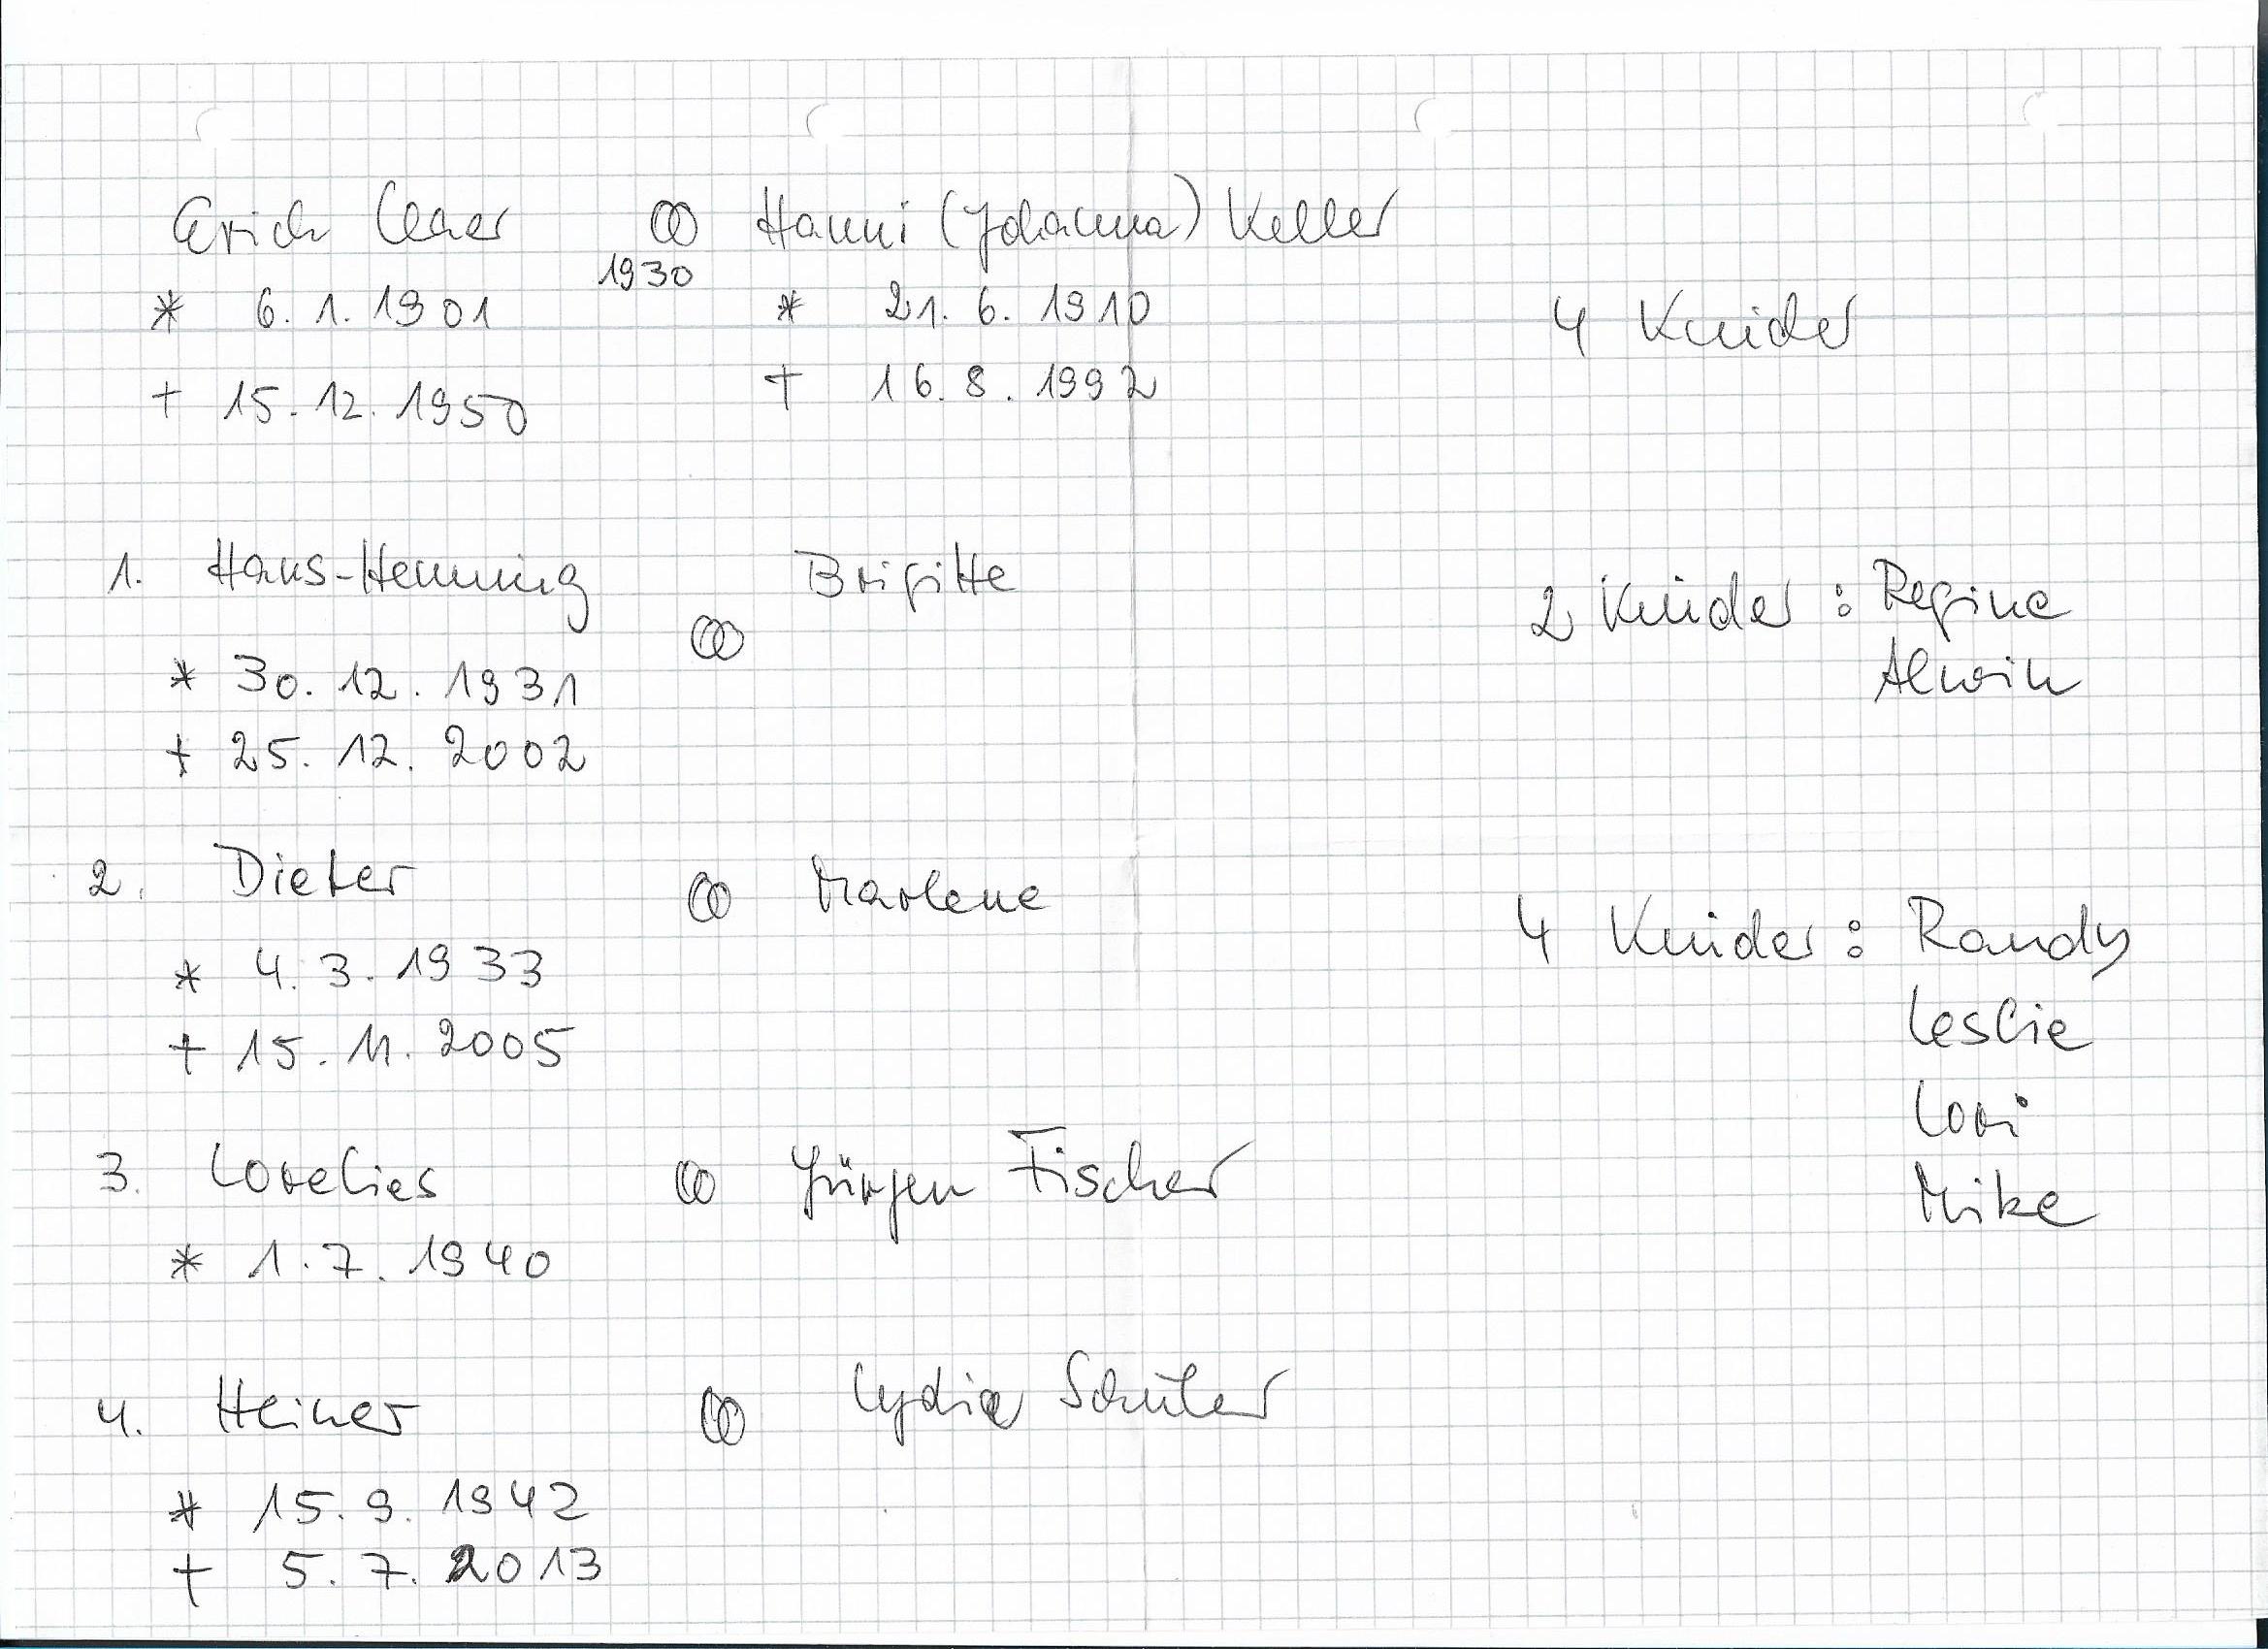 Erich ∞ Hanni (Johanna) Keller
1930
* 6.1.1901 * 21.6.1910 4 Kinder
+ 15.12.1950 + 16.8.1992
1. Hans-Henning ∞ Brigitte 2 Kinder: Regine
* 30.12.1931 Alwin
+ 25.12.2002
2. Dieter ∞ Marlene 4 Kinder: Randy
* 4.3.1933 Leslie
+ 15.11.2005 Lori
3. Lorelies ∞ Jürgen Fischer Mike
* 1.7.1940
4. Heiner ∞ Lydia Schüler
* 15.9.1942
+ 5.7.2013